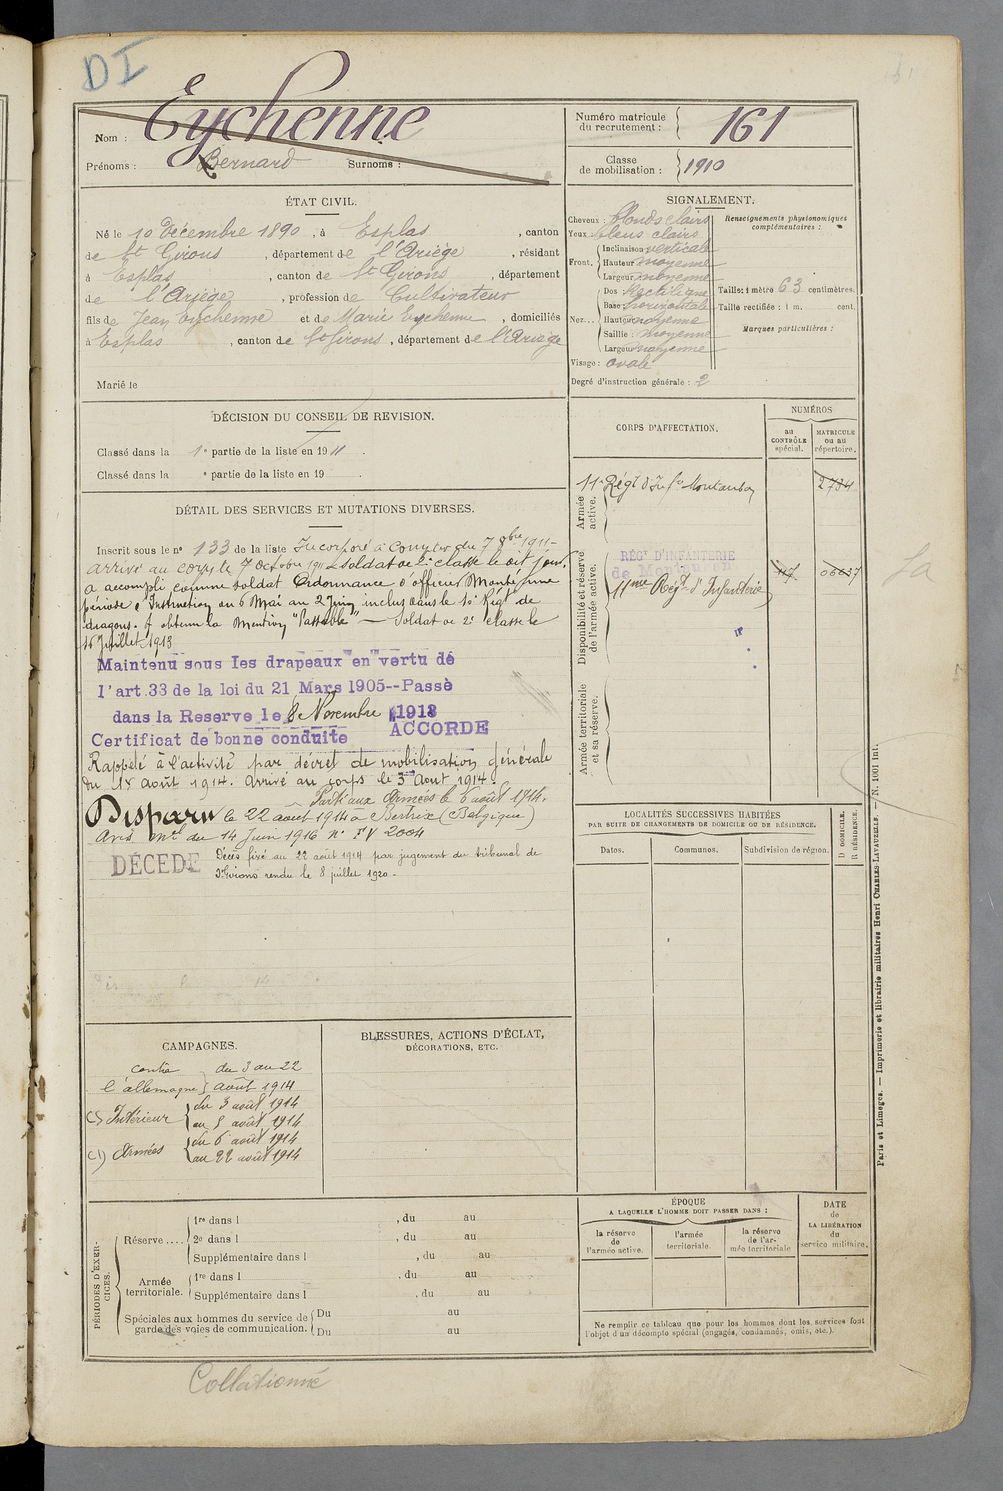 DI
Nom : Eychenne
Prénoms : Bernard Surnoms :
Numéro matricule du recrutement : 161
Classe de mobilisation : 1910
ÉTAT CIVIL.
Né le 10 Décembre 1890, à Esplas, canton
de St Girons, département de l'Ariège, résidant
à Esplas, canton de St Girons, département
de l'Ariège, profession de Cultivateur
fils de Jean Eychenne et de Marie Eychenne, domiciliés
à Esplas, canton de St Girons, département de l'Ariège
Marié le
SIGNALEMENT.
Cheveux : blonds clairs
Yeux : bleus clairs
Front. Inclinaison verticale
Hauteur moyenne
Largeur moyenne
Nez... Dos Rectiligne
Base horizontale
Hauteur moyenne
Saillie : moyenne
Largeur moyenne
Visage : ovale
Degré d'instruction générale : 2
Renseignements physionomiques
complémentaires :
Taille : 1 mètre 63 centimètres.
Taille rectifiée : 1 m. cent.
Marques particulières :
DÉCISION DU CONSEIL DE REVISION.
Classé dans la 1e partie de la liste en 1911.
Classé dans la e partie de la liste en 19 .
CORPS D'AFFECTATION.
NUMÉROS
au CONTRÔLE spécial.
MATRICULE ou au répertoire.
Armée active.
11e Régt d'Infie Montauban 2734
Disponibilité et réserve de l'armée active.
RÉGt D'INFANTERIE
de Montauban
11me Regt d'Infanterie 117 06637
Armée territoriale et sa réserve.
DÉTAIL DES SERVICES ET MUTATIONS DIVERSES.
Inscrit sous le no 133 de la liste Incorporé à compter du 7 8bre 1911-
arrivé au corps le 7 octobre 1911 soldat de 2e classe le dit jour.
a accompli comme soldat Ordonnance d'officier Monté, une
période d'Instruction du 6 Mai au 2 Juin, inclus dans le 10e Régt de
dragons. A obtenu la Mention "Passable" — Soldat de 2e classe le
16 Juillet 1913
Maintenu sous les drapeaux en vertu de
l'art.33 de la loi du 21 Mars 1905--Passé
dans la Reserve le 8 Novembre 1913
Certificat de bonne conduite ACCORDE
Rappelé à l'activité par décret de mobilisation générale
du 1er août 1914. Arrivé au corps le 3 Aout 1914.
Parti aux Armées le 6 août 1914.
Disparu le 22 août 1914 à Bertrix (Belgique)
Avis Mel du 14 Juin 1916 No FV 2004
DÉCÉDÉ Décès fixé au 22 août 1914 par jugement du tribunal de
St Girons rendu le 8 juillet 1920.-
LOCALITÉS SUCCESSIVES HABITÉES
PAR SUITE DE CHANGEMENTS DE DOMICILE OU DE RÉSIDENCE.
Dates.
Communes.
Subdivision de région.
D DOMICILE.
R RÉSIDENCE.
CAMPAGNES.
contre l'allemagne du 3 au 22
août 1914
CS Intérieur du 3 août 1914
au 5 août 1914
C1) Armées du 6 août 1914
au 22 août 1914
BLESSURES, ACTIONS D'ÉCLAT,
DÉCORATIONS, ETC.
PÉRIODES D'EXERCICES.
Réserve .... 1re dans l , du au
2e dans l , du au
Supplémentaire dans l , du au
Armée territoriale. 1re dans l , du au
Supplémentaire dans l , du au
Spéciales aux hommes du service de
garde des voies de communication. Du au
Du au
ÉPOQUE
A LAQUELLE L'HOMME DOIT PASSER DANS :
la réserve de l'armée active.
l'armée territoriale.
la réserve de l'armée territoriale
DATE de LA LIBÉRATION du service militaire.
Ne remplir ce tableau que pour les hommes dont les services font
l'objet d'un décompte spécial (engagés, condamnés, omis, etc.).
Paris et Limoges. — Imprimerie et librairie militaires Henri CHARLES-LAVAUZELLE. — N. 1001 int.
Collationné